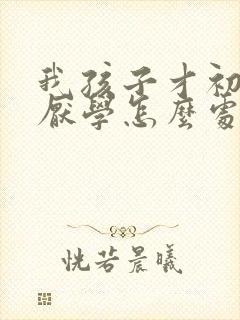 我孩子才初
厭學怎麼處
恍若晨曦